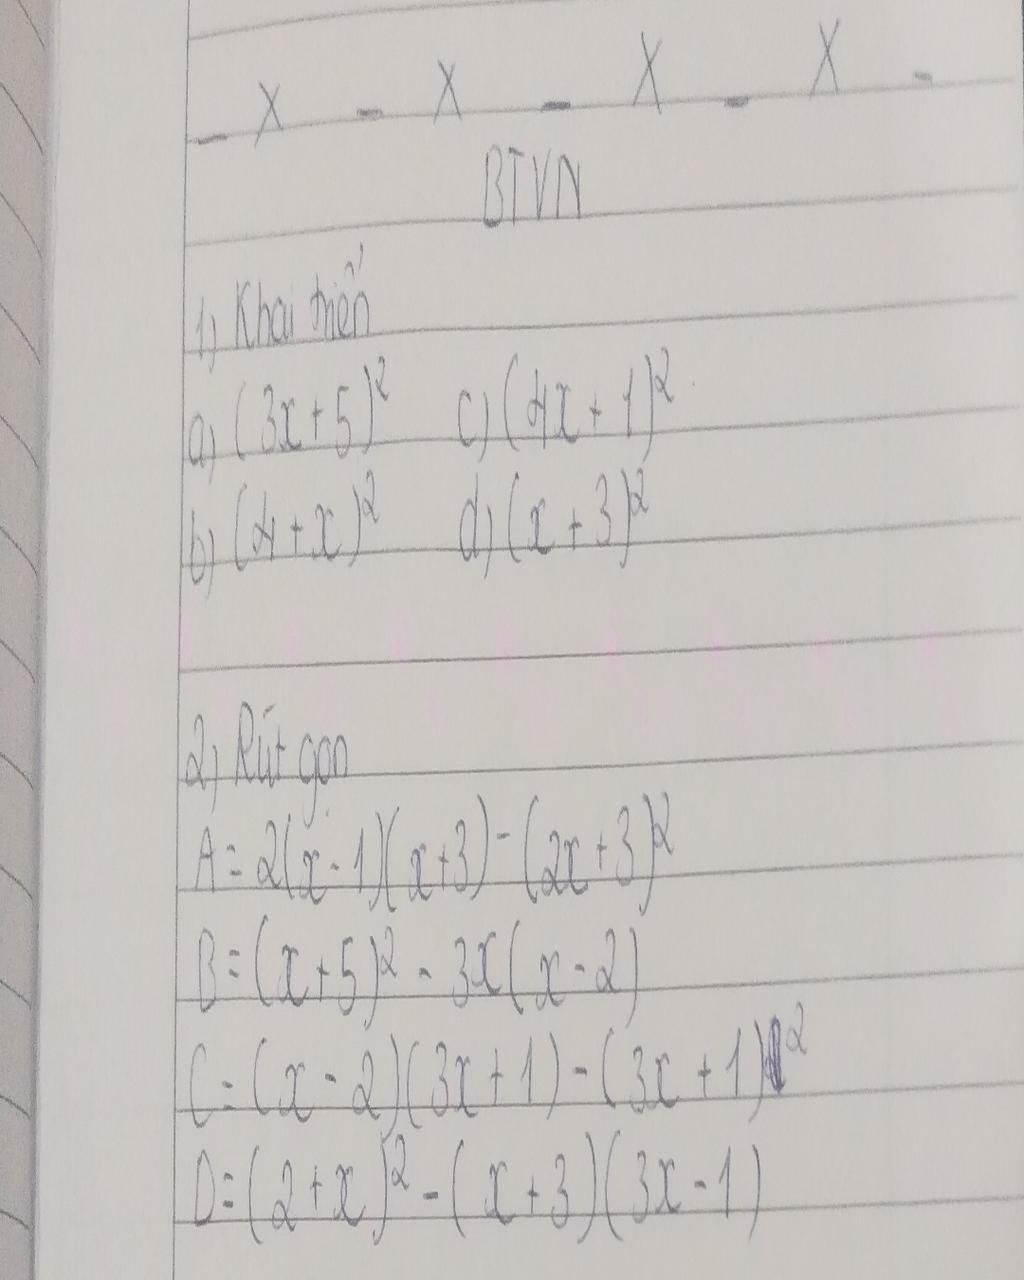 - X - X - X - X -
BTVN
1, Khai triển
a) (3x+5)² c) (4x+1)²
b) (4+x)² d) (x+3)²
2, Rút gọn
A = 2(x-1)(x+3) - (2x+3)²
B = (x+5)² - 3x(x-2)
C = (x-2)(3x+1) - (3x+1)²
D = (2+x)² - (x+3)(3x-1)